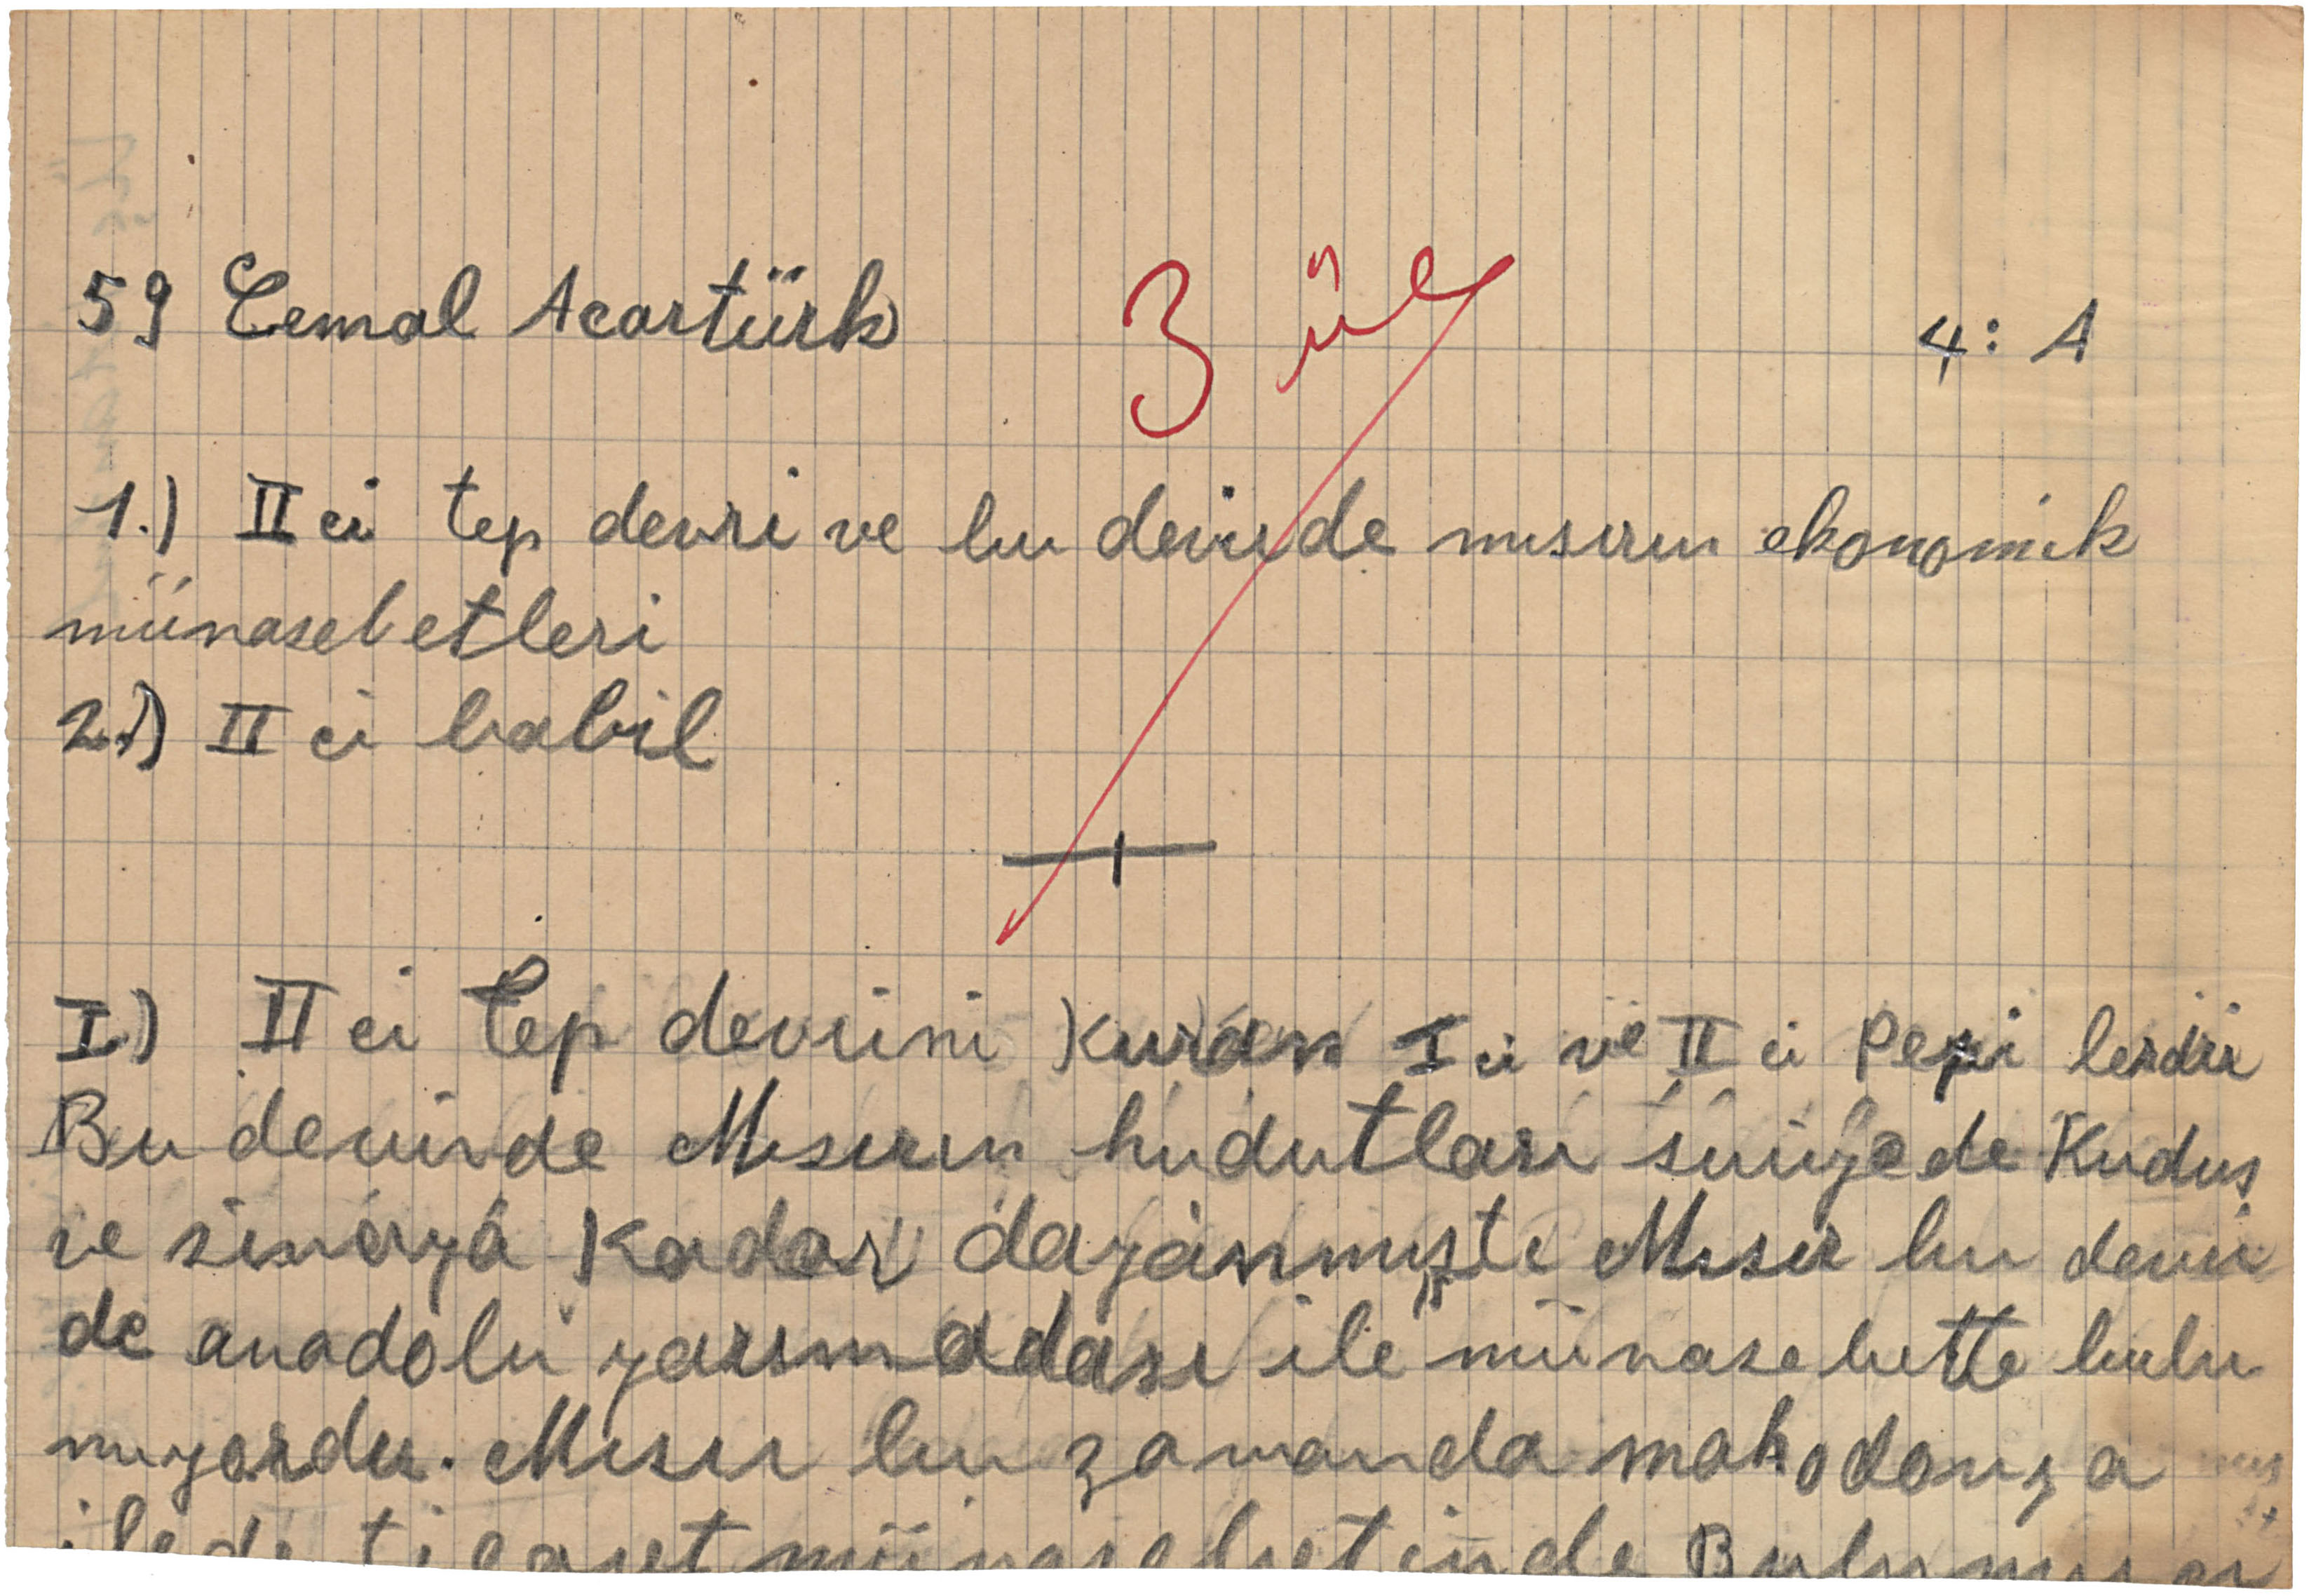 59 Cemal Acartürk 3 üç 4: A
1.) II ci tep devri ve bu devirde mısırın ekonomik
münasebetleri
2.) II ci babil
I.) II ci Tep devrini Kuran I ci ve II ci Pepi lerdir
Bu devirde Mısırın hudutları suriyede Kudus
ve sinaya Kadar dayanmıştı Mısır bu devir
de anadolu yarımadası ile münasebette bulu
nuyordu. Mısır bu zamanda makodonya
ilede ticaret münasebetinde Bulunuyor